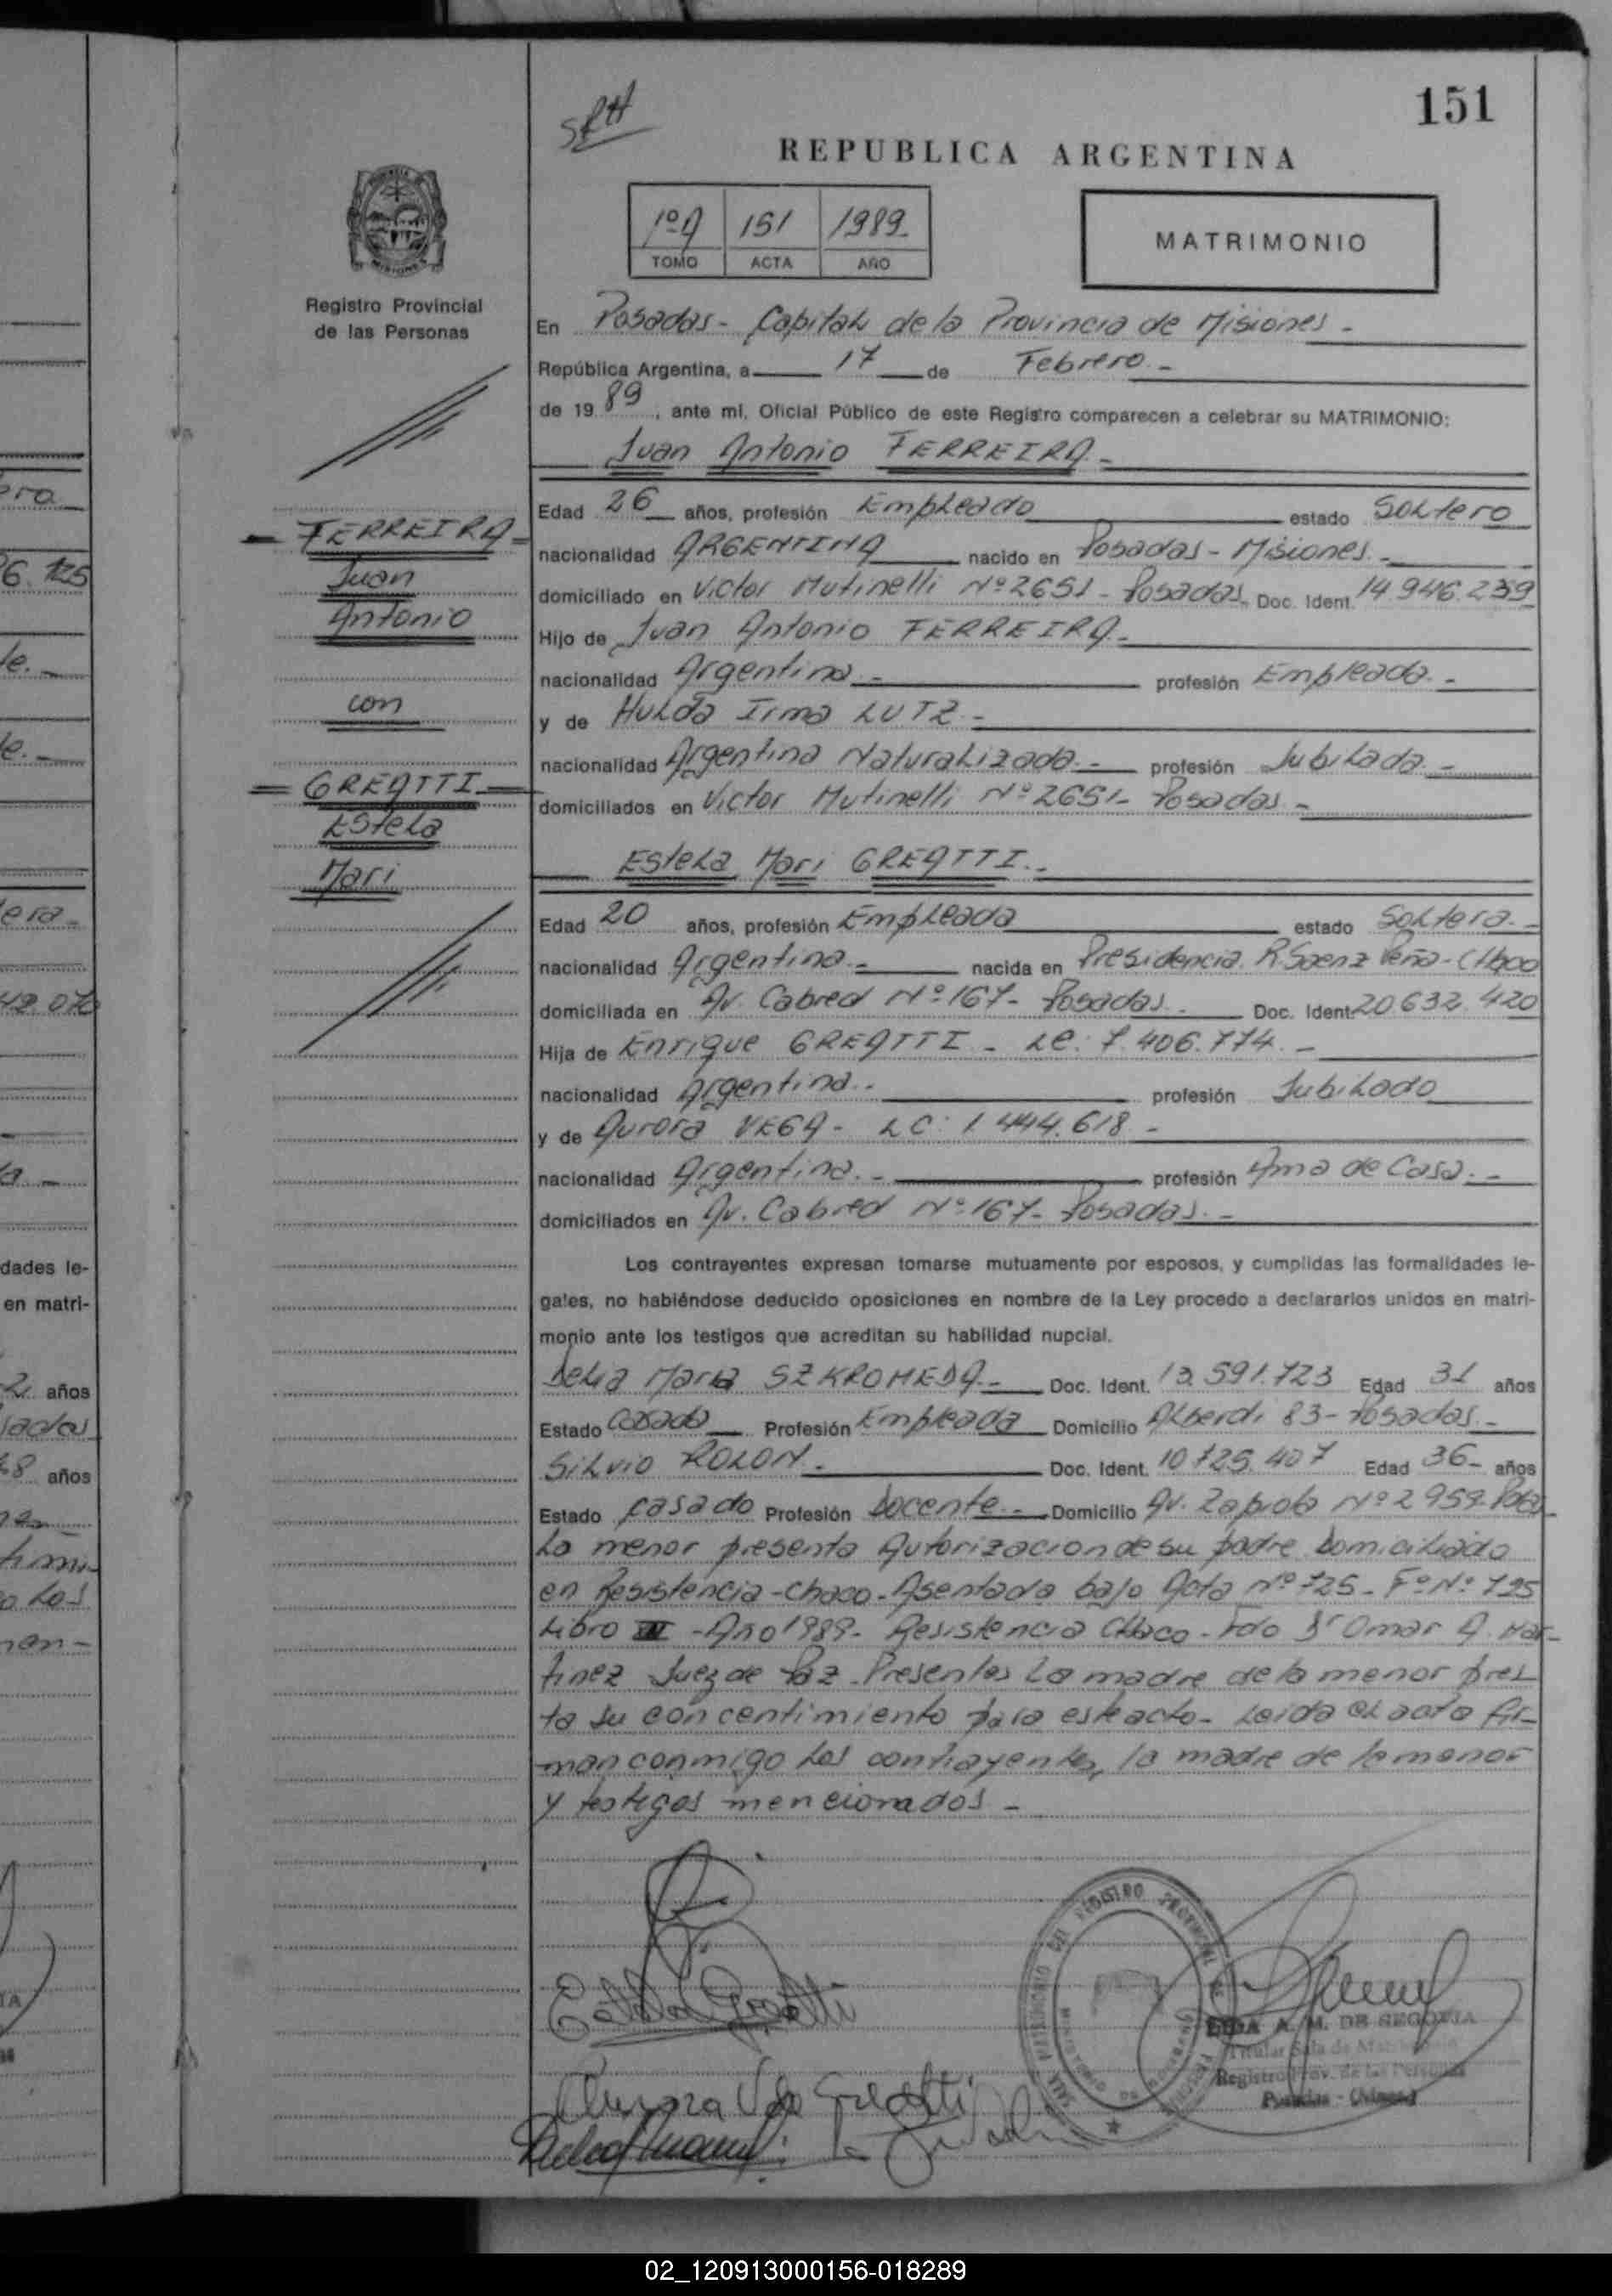 151
SRH
REPUBLICA ARGENTINA
1ºA 151 1989-
TOMO ACTA AÑO
MATRIMONIO
Registro Provincial
de las Personas
En Posadas - Capital de la Provincia de Misiones -
República Argentina, a 17 de Febrero -
de 19 89, ante mi, Oficial Público de este Registro comparecen a celebrar su MATRIMONIO:
Juan Antonio FERREIRA -
Edad 26 años, profesión Empleado estado Soltero
nacionalidad ARGENTINA nacido en Posadas - Misiones. -
domiciliado en Victor Mutinelli Nº 2651 - Posadas Doc. Ident. 14.946.239
Hijo de Juan Antonio FERREIRA -
nacionalidad Argentina - profesión Empleado. -
y de Hulda Irma LUTZ -
nacionalidad Argentina Naturalizada. - profesión Jubilada -
domiciliados en Victor Mutinelli Nº 2651 - Posadas -
Estela Mari GREATTI. -
Edad 20 años, profesión Empleada estado Soltera. -
nacionalidad Argentina. - nacida en Presidencia R. Saenz Peña - Chaco
domiciliada en Av. Cabred Nº 167 - Posadas. Doc. Ident 20.632.420
Hija de Enrique GREATTI - LE: 7.406.774. -
nacionalidad Argentina. - profesión Jubilado
y de Aurora VEGA - LC: 1.444.618 -
nacionalidad Argentina. - profesión Ama de Casa. -
domiciliados en Av. Cabred Nº 167 - Posadas. -
Los contrayentes expresan tomarse mutuamente por esposos, y cumplidas las formalidades le-
gales, no habiéndose deducido oposiciones en nombre de la Ley procedo a declararlos unidos en matri-
monio ante los testigos que acreditan su habilidad nupcial.
Delia Maria SZKROMEDA - Doc. Ident. 13.591.723 Edad 31 años
Estado Casada Profesión Empleada Domicilio Alberdi 83 - Posadas -
Silvio ROLON. Doc. Ident. 10.725.407 Edad 36 - años
Estado Casado Profesión Docente - Domicilio Av. Zapiola Nº 2959
La menor presenta Autorizacion de su padre domiciliado
en Resistencia - Chaco - Asentada bajo Acta Nº 725 - Fº Nº 725
Libro - Año 1989 - Resistencia Chaco - Fdo Dr Omar A. Mar-
tinez Juez de Paz - Presentes La madre de la menor pres
ta su concentimiento para este acto - Leida el acta fir-
man conmigo los contrayentes, la madre de la menor
y testigos mencionados -
FERREIRA
Juan
Antonio
con
GREATTI
Estela
Mari
Estela Greatti
Aurora V de Greatti
A. M. DE SEGOVIA
Titular Sala de
Registro Prov. de las Personas
Posadas -
02_120913000156-018289